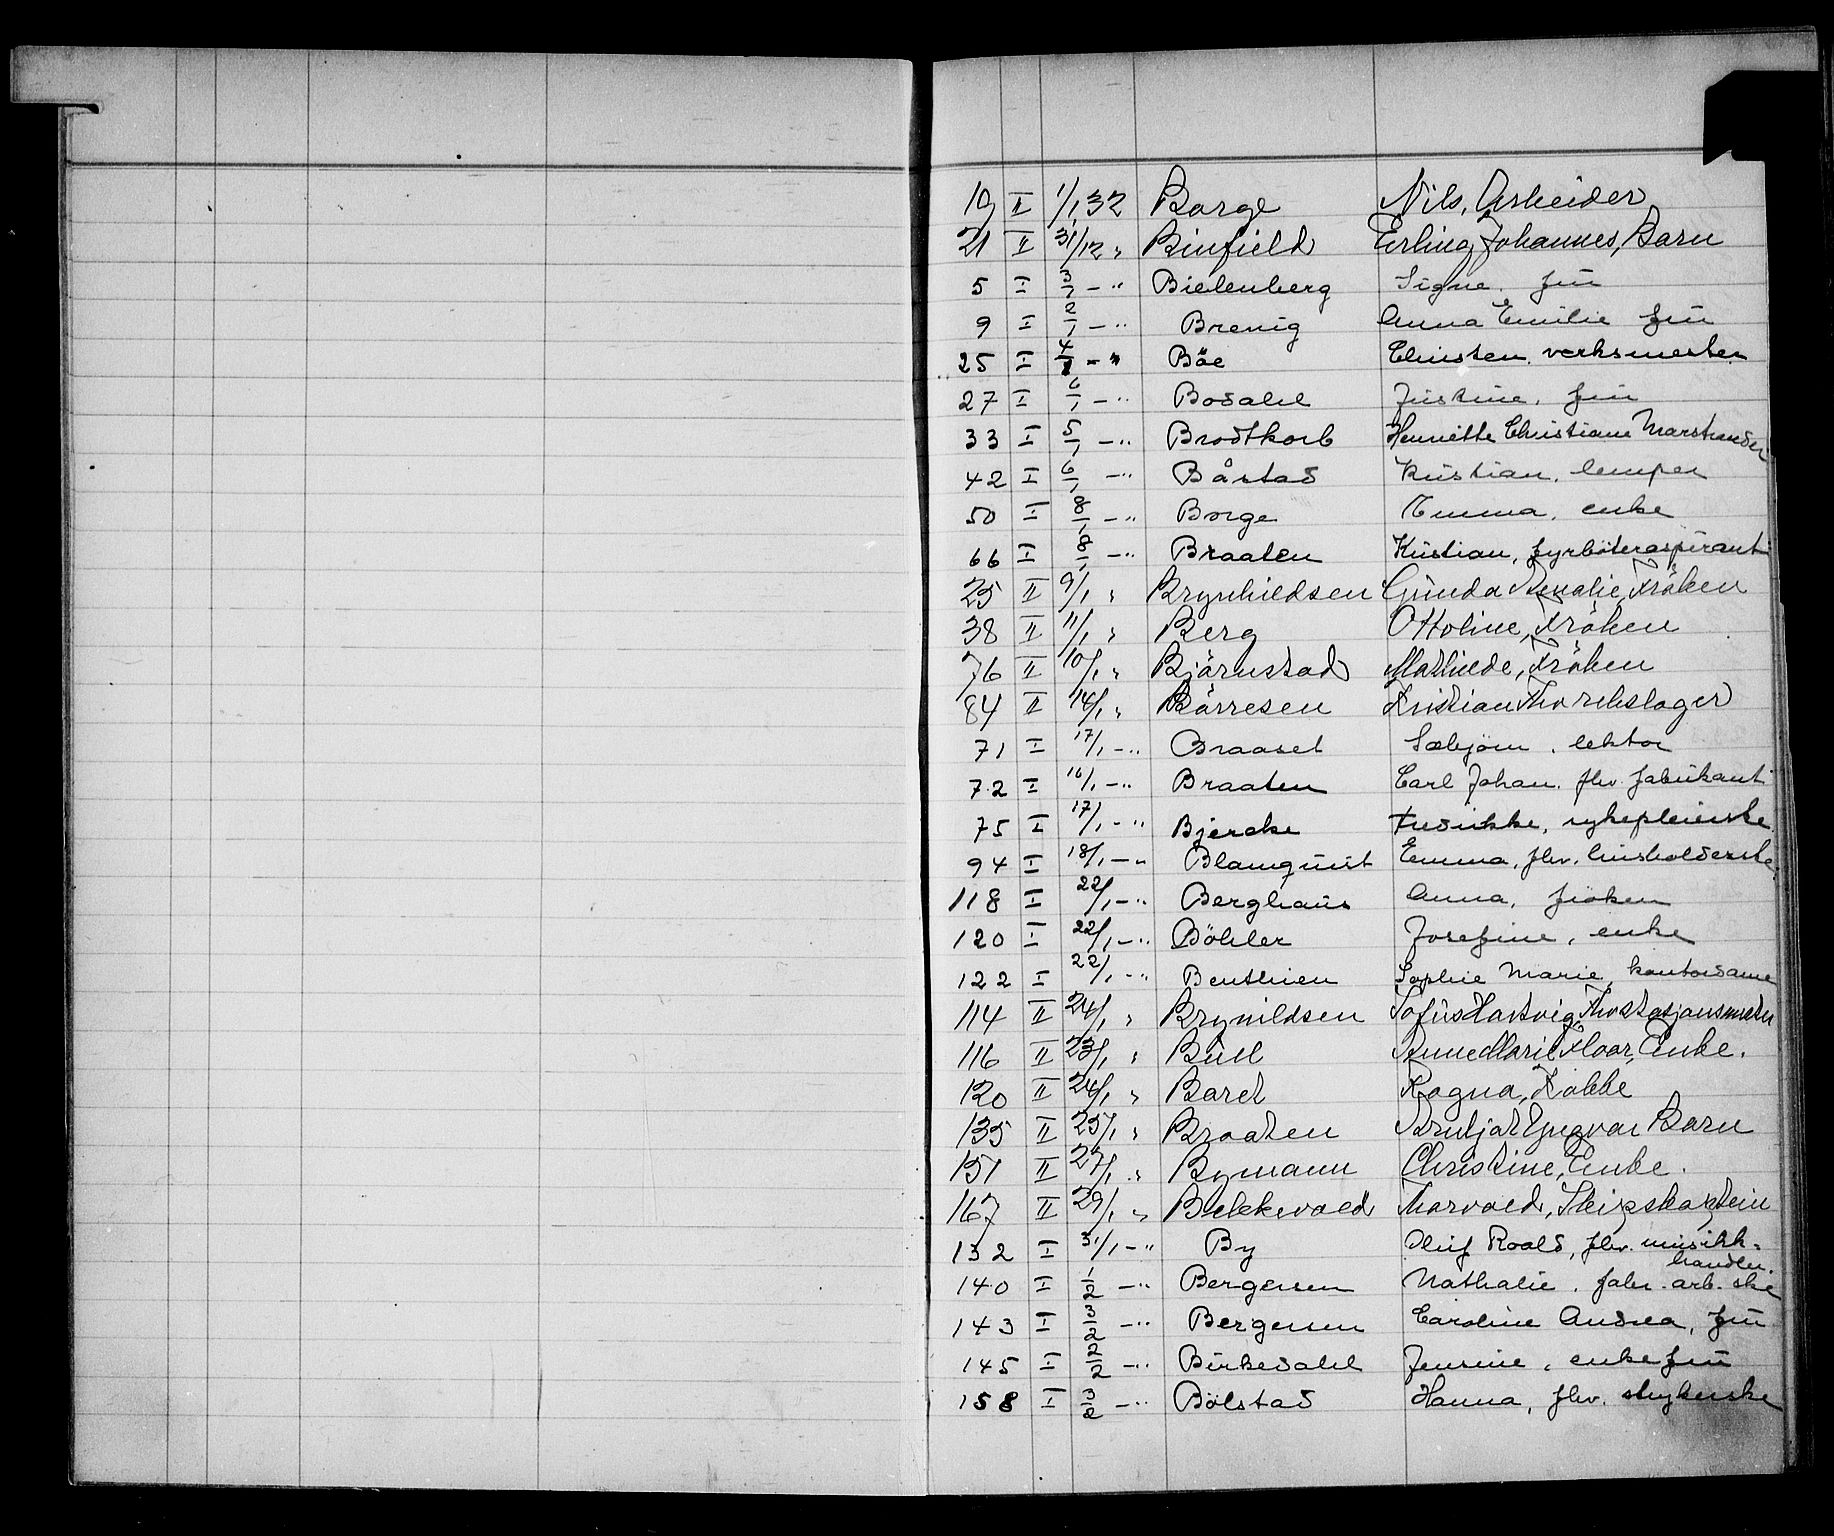 19 II 1/1 32 Borge Nils, Arbeider
21 II 31/12 " Binfield Erling Johannes, Barn
5 I 3/1 - " Bielenberg Signe. frü
9 I 2/1 - " Brenig Anna Emilie frü
25 I 4/1 - " Böe Christen. verksmester
27 I 6/1 - " Bodahl Justine, frü
33 I 5/1 - " Brodtkorb Henriette Christiane Marstrander
42 I 6/1 - " Båstad Kristian. lemper
50 I 8/1 - " Borge Emma, enke
66 I 8/1 - " Braaten Kristian, fyrböteraspirant
25 II 9/1 " Brynhildsen Gunda Amalie, Fröken
38 II 11/1 " Berg Ottoline, Fröken
76 II 10/1 " Björnstad Mathilde, Fröken
84 II 14/1 " Börresen Kristian Fhv rebslager
71 I 17/1 - " Braaset Sæbjörn, lektor
72 I 16/1 - " Braaten Carl Johan. fhv. fabrikant
75 I 17/1 - " Bjercke Fredrikke, sykepleierske
94 I 18/1 - " Blomquist Emma, fhv. husholderske
118 I 22/1 - " Berghaus Anna, fröken
120 I 22/1 - " Böhler Josefine, enke
122 I 22/1 - " Benthien Sophie Marie, kontordame
114 II 24/1 " Brynildsen Sofus Hartvig, Fhv stasjonsmester
116 II 23/1 " Bull Anne Marie Floor, Enke.
120 II 24/1 " Boret Ragna, Kokke
135 II 25/1 " Braaten Arnljot Yngvar Barn
151 II 27/1 " Bymann Christine, Enke.
167 II 29/1 " Bekkevold Thorvald, Skipskaptein
132 I 31/1 - " By Oluf Roald, fhv. musikk-
handler.
140 I 1/2 - " Bergersen Nathalie, fabr. arb. ske
143 I 3/2 - " Bergersen Caroline Andrea, frü
145 I 2/2 - " Birkedahl Jensine, enkefrü
158 I 3/2 - " Bölstad Hanna, fhv. strykerske